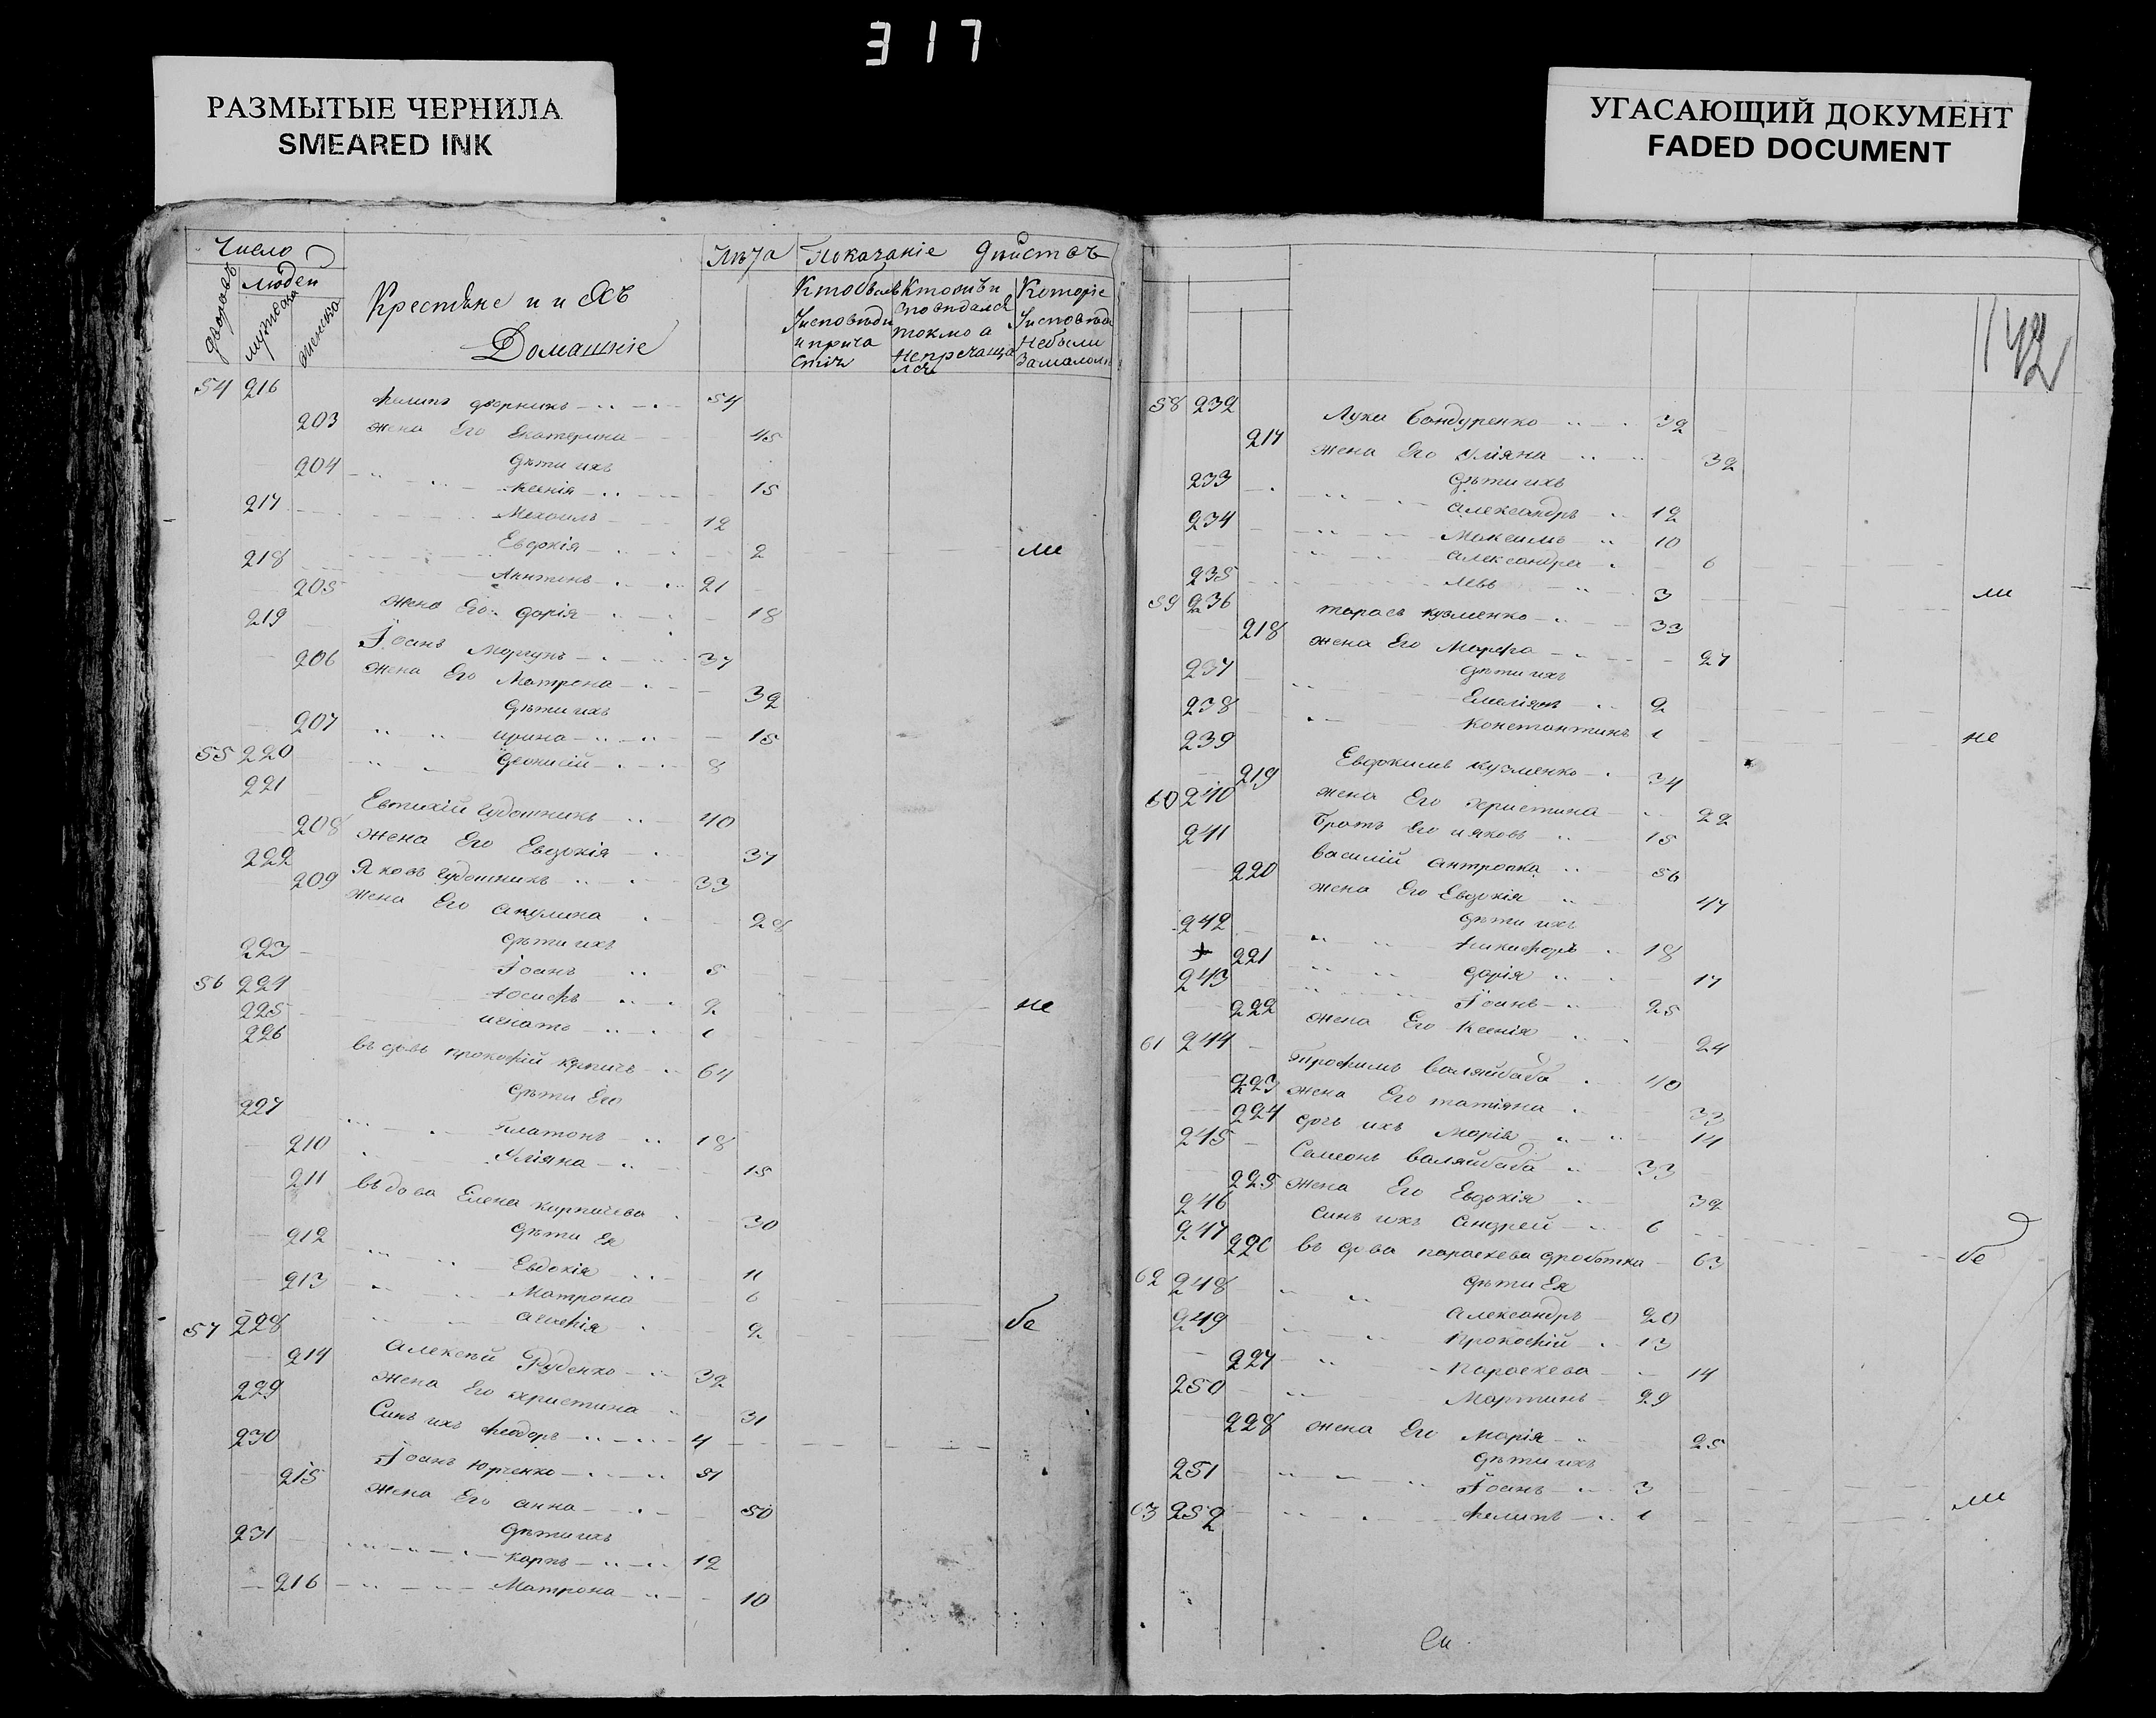 317
РАЗМЫТЫЕ ЧЕРНИЛА
SMEARED INK
УГАСАЮЩИЙ ДОКУМЕНТ
FADED DOCUMENT
Число
дворовъ
людей
мужска
женска
Крестьяне и и ихъ
Домашніе
Лѣта
Показаніе дѣйствъ
Исповѣди
и прича
токмо а
Которіе
Небыли
54 216 Филипъ дверникъ 54
203 жена Его Екатерина 45
дѣти ихъ
204 Ксенія 15
217 Михоилъ 12
Евдокія 2
218 Антонъ 21
205 жена Его дарія 18
219 Іоанъ Моргунъ 37
206 жена Его Матрона 32
дѣти ихъ
207 ирина 15
55 220 Деонисій 8
221 Евтихій 40
208 жена Его Евдокія 37
222 Яковъ 33
209 жена Его акулина 28
дѣти ихъ
223 Іоанъ 5
56 224 Іосифъ 2 не
225 игнатъ 1
226 вдовъ прокофій 64
дѣти Его
227 Платонъ 18
210 Уліяна 15
211 вьдова Елена кирпичева 30
дѣти Ея
212 Евдокія 11
213 Матрона 6
2 бе
57 228 алексѣй Руденко 32
214 жена Его христина 31
229 Синъ ихъ Феодоръ 4
230 Іоанъ Юрченко 51
215 жена Его анна 50
дѣти ихъ
231 карпъ 12
216 Матрона 10
142
58 232 Лука бондуренко 32
217 жена Его Уліяна 32
дѣти ихъ
233 александръ 12
234 Максимъ 10
александра 6
235 левъ 3
59 236 тарасъ кузменко 33
218 жена Его Марфа 27
дѣти ихъ
237 Емеліянъ 2
238 константинъ 1 не
239 Евдокимъ кузменко 34
219 жена Его христина 22
60 240 братъ Его ияковъ 15
241 василій 56
220 жена Его Евдокія 47
дѣти ихъ
242 Никифоръ 18
221 дарія 17
243 Іоанъ 25
222 жена Его Ксенія 24
61 244 трофимъ валяйбаба 40
223 жена Его татіяна 33
224 дочъ ихъ Марія 14
245 Семіонъ валяйбаба 33
225 жена Его Евдокія 32
246 Синъ ихъ андрей 6
247 226 вьдова параскева дроботка 63 бе
62 248 дѣти Ея
александръ 20
249 прокофій 13
227 параскева 14
250 Мартинъ 29
228 жена Его Марія 25
дѣти ихъ
251 Іоанъ 3
63 252 Филипъ 1